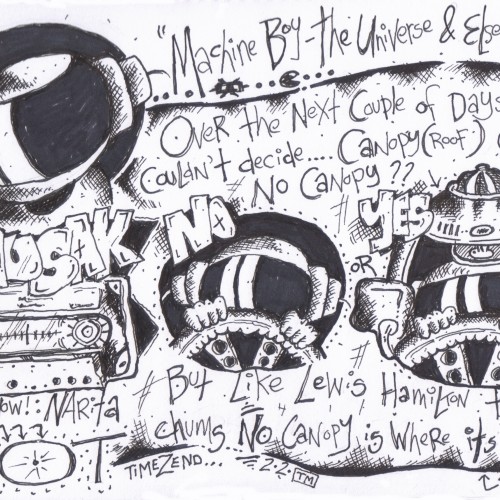 "Machine Boy-the Universe & Else
Over the Next Couple of Days
Couldn't decide.... Canopy (Roof)
No Canopy??
No
Yes
or
Now!: Narita
But Like Lewis Hamilton
chums No Canopy is Where its
TimeZend... 2.2 TM